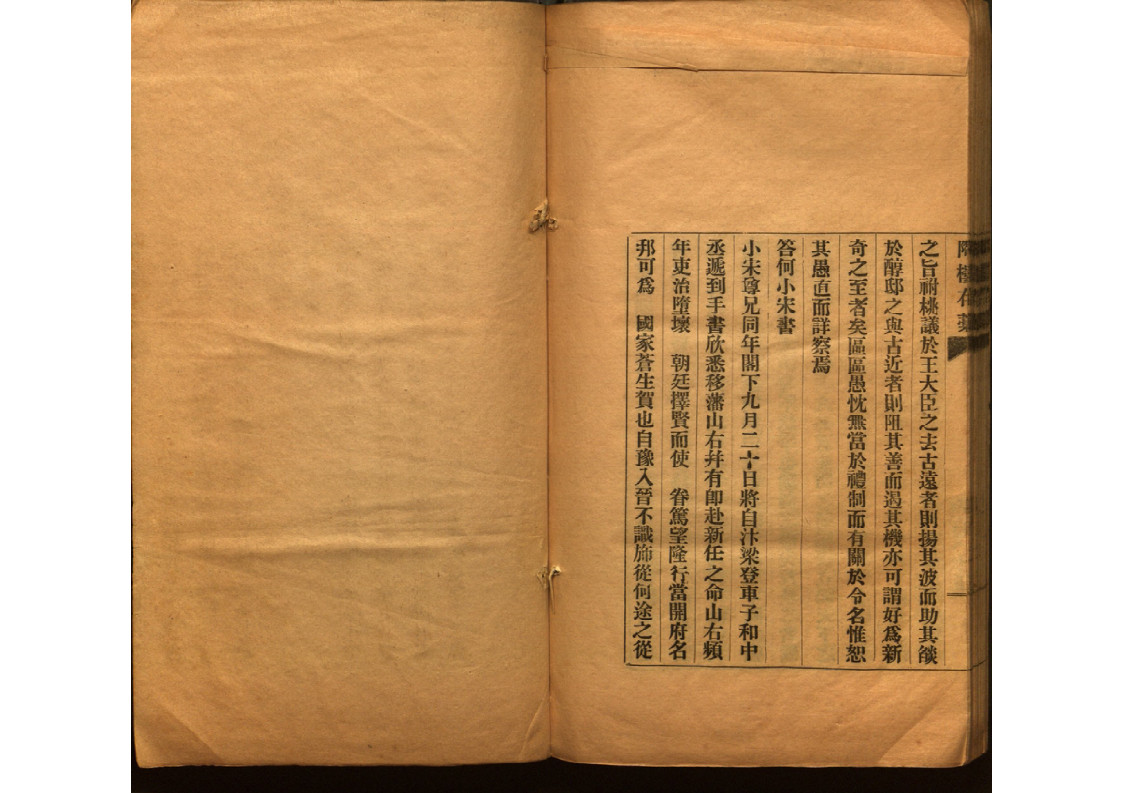 之旨祔祧議於王大臣之去古遠者則揚其波而助其燄
於醇邸之與古近者則阻其善而遏其機亦可謂好為新
奇之至者矣區區愚忱無當於禮制而有關於令名惟恕
其愚直而詳察焉
答何小宋書
小宋尊兄同年閣下九月二十日將自汴梁登車子和中
丞遞到手書欣悉移藩山右幷有卽赴新任之命山右頻
年吏治墮壞 朝廷擇賢而使 眷篤望隆行當開府名
邦可為 國家蒼生賀也自豫入晉不識旆從何途之從